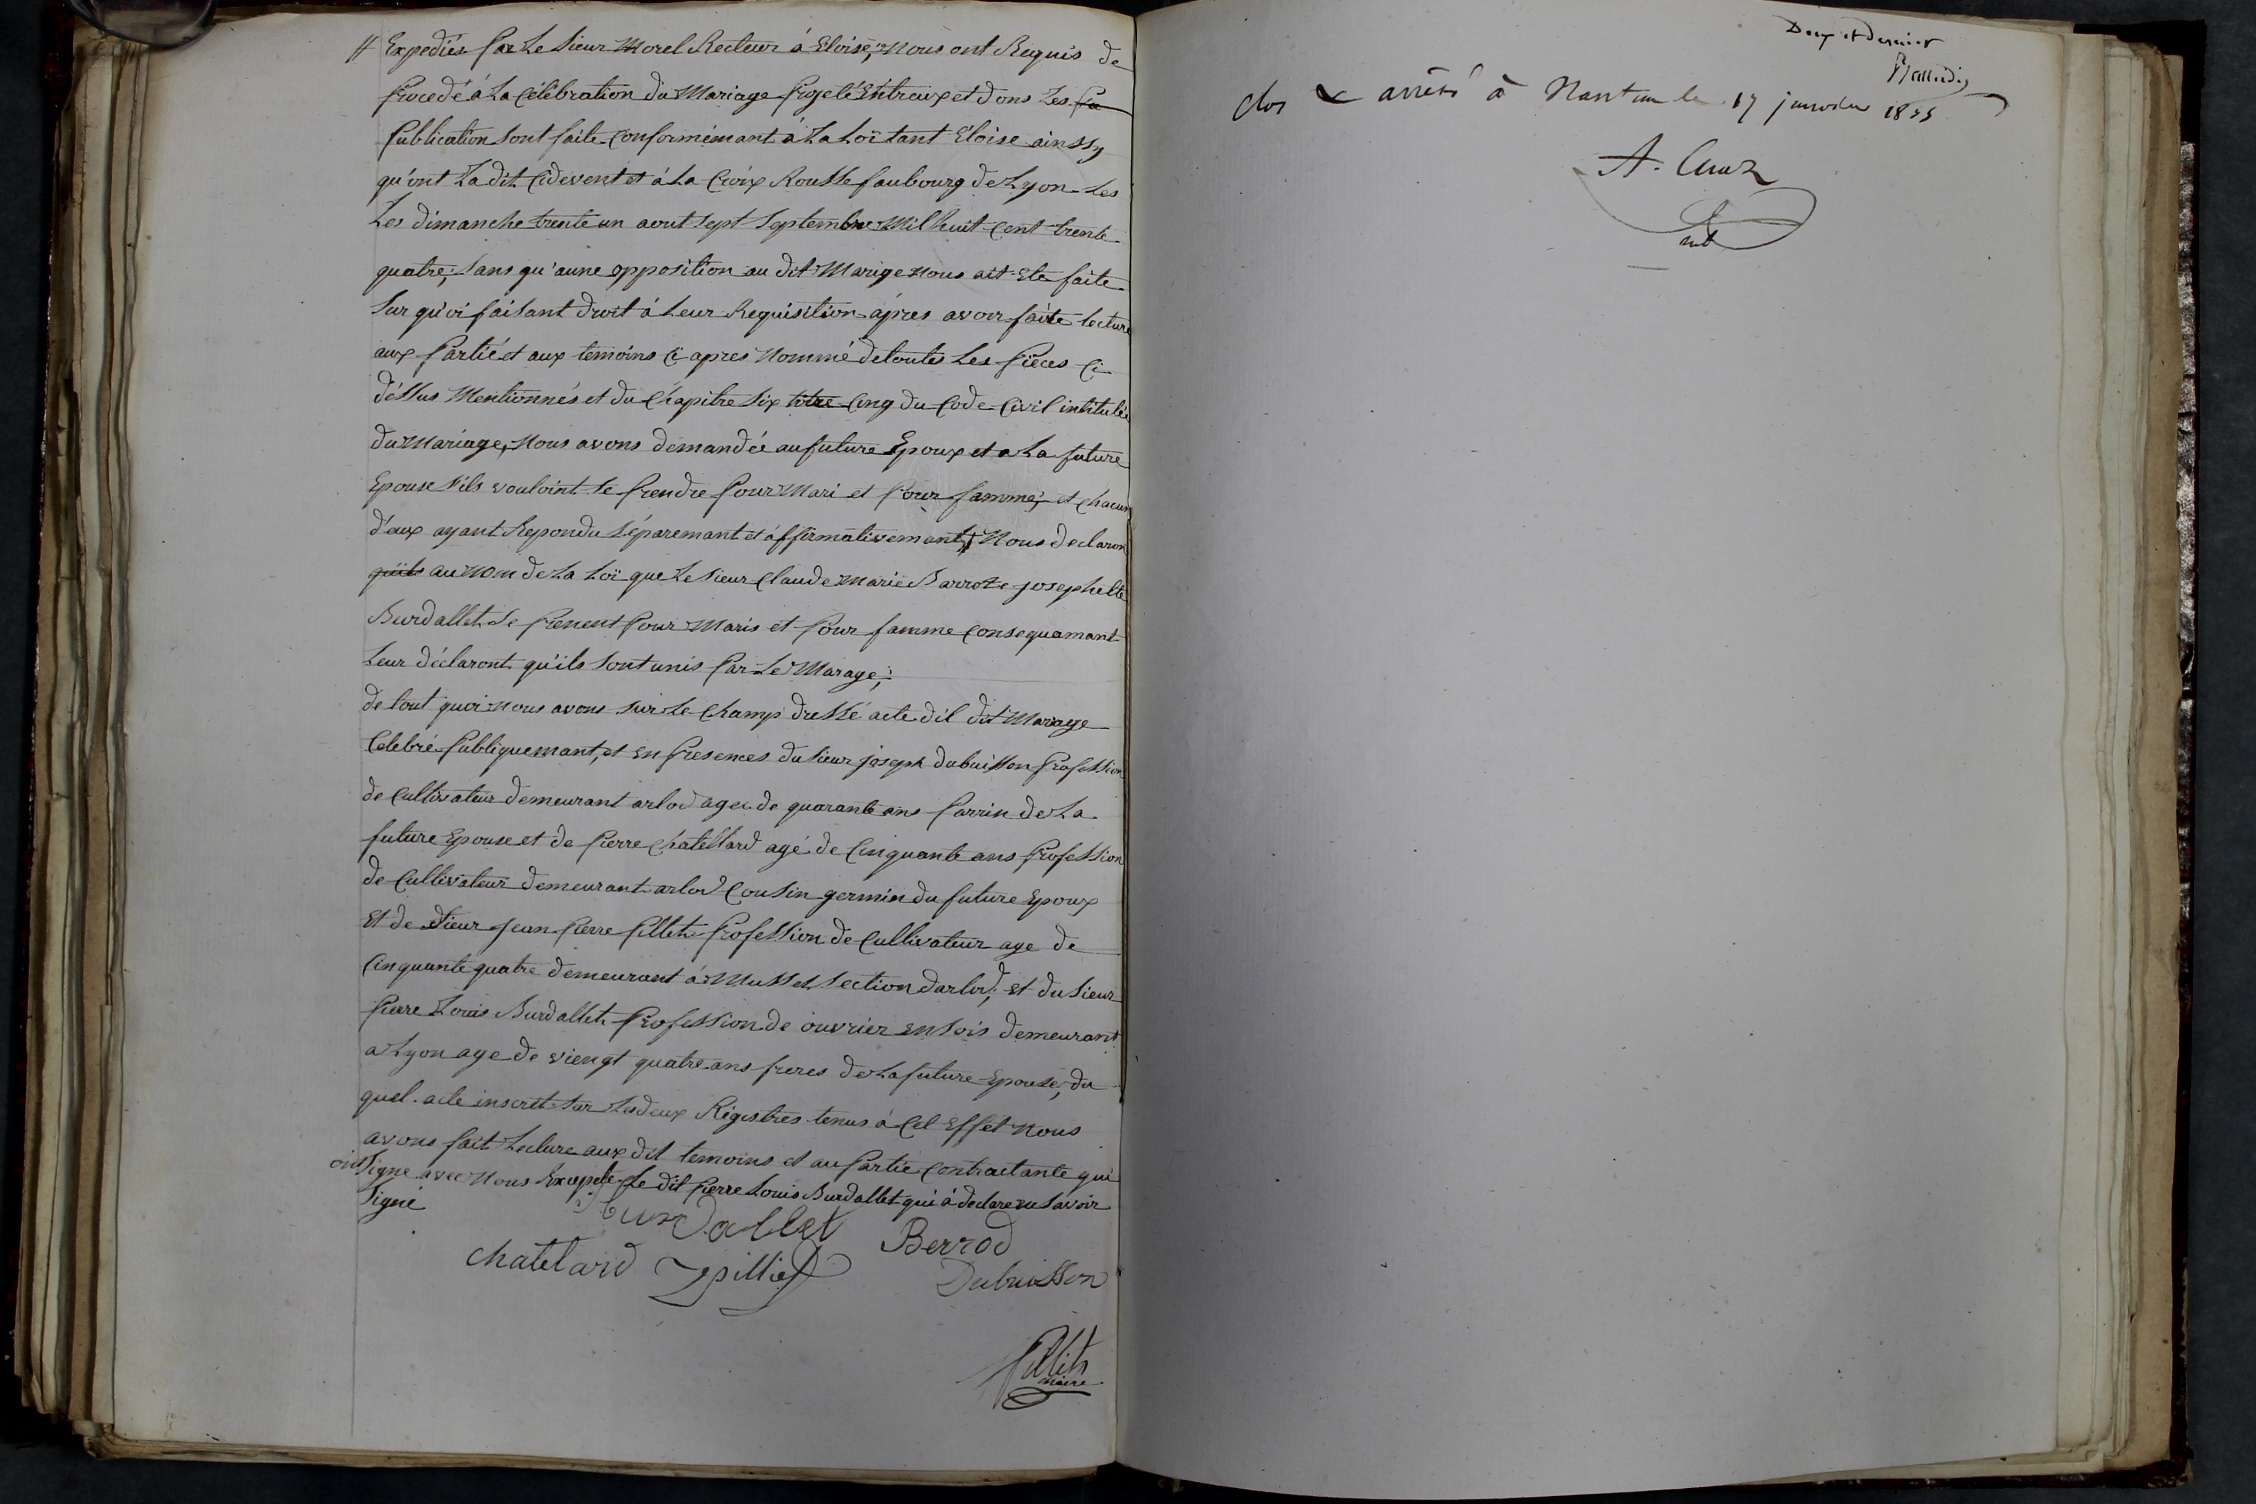 // Expediés par Le Sieur Morel Recteur à Eloise, Nous ont Requis de
procedé à La Célébration du Mariage projeté Entreux et dons Les pu
publication sont faite conformémant à La Loi tant Eloise ainssy
qu'ont La dit Cidevent et à La Croix Rousse faubourg de Lyon Les
Les dimanche trente un aout sept septembre Mil huit cent trente
quatre; sans qu'aune opposition au dit Marige nous ait Ete faite
sur qu'oi faisant Droit à Leur Requisition après avoir faite lecture
aux partié et aux temoins ci apres Nommé detoutes Les pièces ci
déssus Mentionnés et du Chapitre six titre cinq du Code Civil intitulée
du Mariage, Nous avons demandée au future Epoux et a La future
Epouse s'ils vouloint se prendre pour Mari et pour famme; et chacun
d'eux ayant Repondu séparemant et affirmativemant Nous declaron
qu'ils au Nom de La Loi que Le sieur Claude Marie Barrot e josephette
Burdallet se prenent pour Maris et pour famme consequamant
Leur déclaront qu'ils sont unis par Le Marage;
de tout quoi nous avons sur Le Champ dressé acte dil dit Mariage
Celebré publiquemant, et En presences du sieur joseph dubuisson profession
de Cultivateur demeurant arlod agée de quarante ans parrin de La
future Epouse et de pierre Châtellard agé de Cinquante ans profession
de Cultivateur demeurant arlod Cousin germin du future Epoux
Et de Sieur Jean pierre pillet profession de Cultivateur age de
Cinquante quatre demeurant à Mussel section darlod; et du sieur
pierre Louis Burdallet profession de ouvrier en sois demeurant
a Lyon age de viengt quatre ans freres de La future Epouse, du
quel acte inscrit sur Les deux Régistres tenus à Cel Effet Nous
avons fait Lecture aux dit temoins et au partie contractante qui
ont signe avec Nous Excepte Le dit pierre Louis Burdallet qui à declare ne savoir
signé
Burdallet Berrod
Chatelard pillet Dubuisson
pillet
maire
Deux et dernier
clos & arrêté à Nantua le 17 janvier 1835